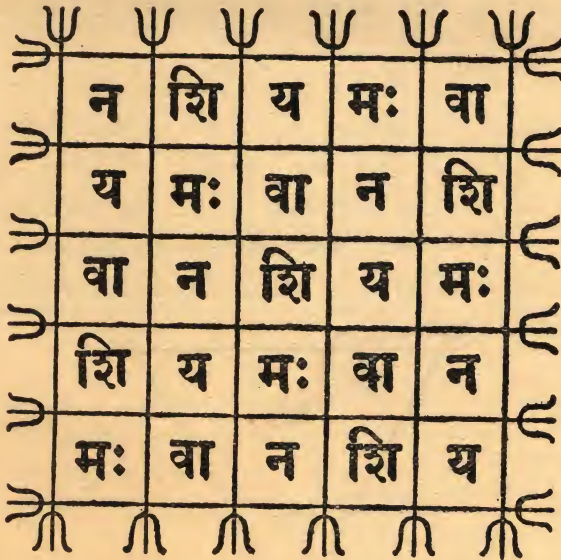 न शि य मः वा
य मः वा न शि
वा न शि य मः
शि य मः वा न
मः वा न शि य